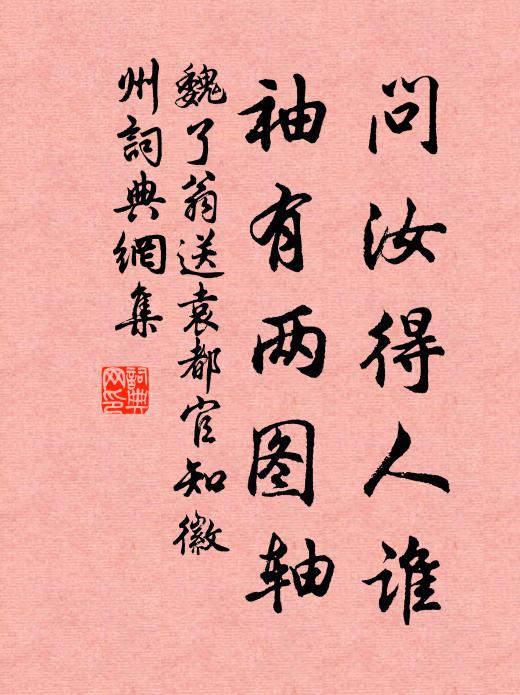 问汝得人谁
袖有两图轴
魏了翁送袁都官知徽
州詞典網集
詞典
网印